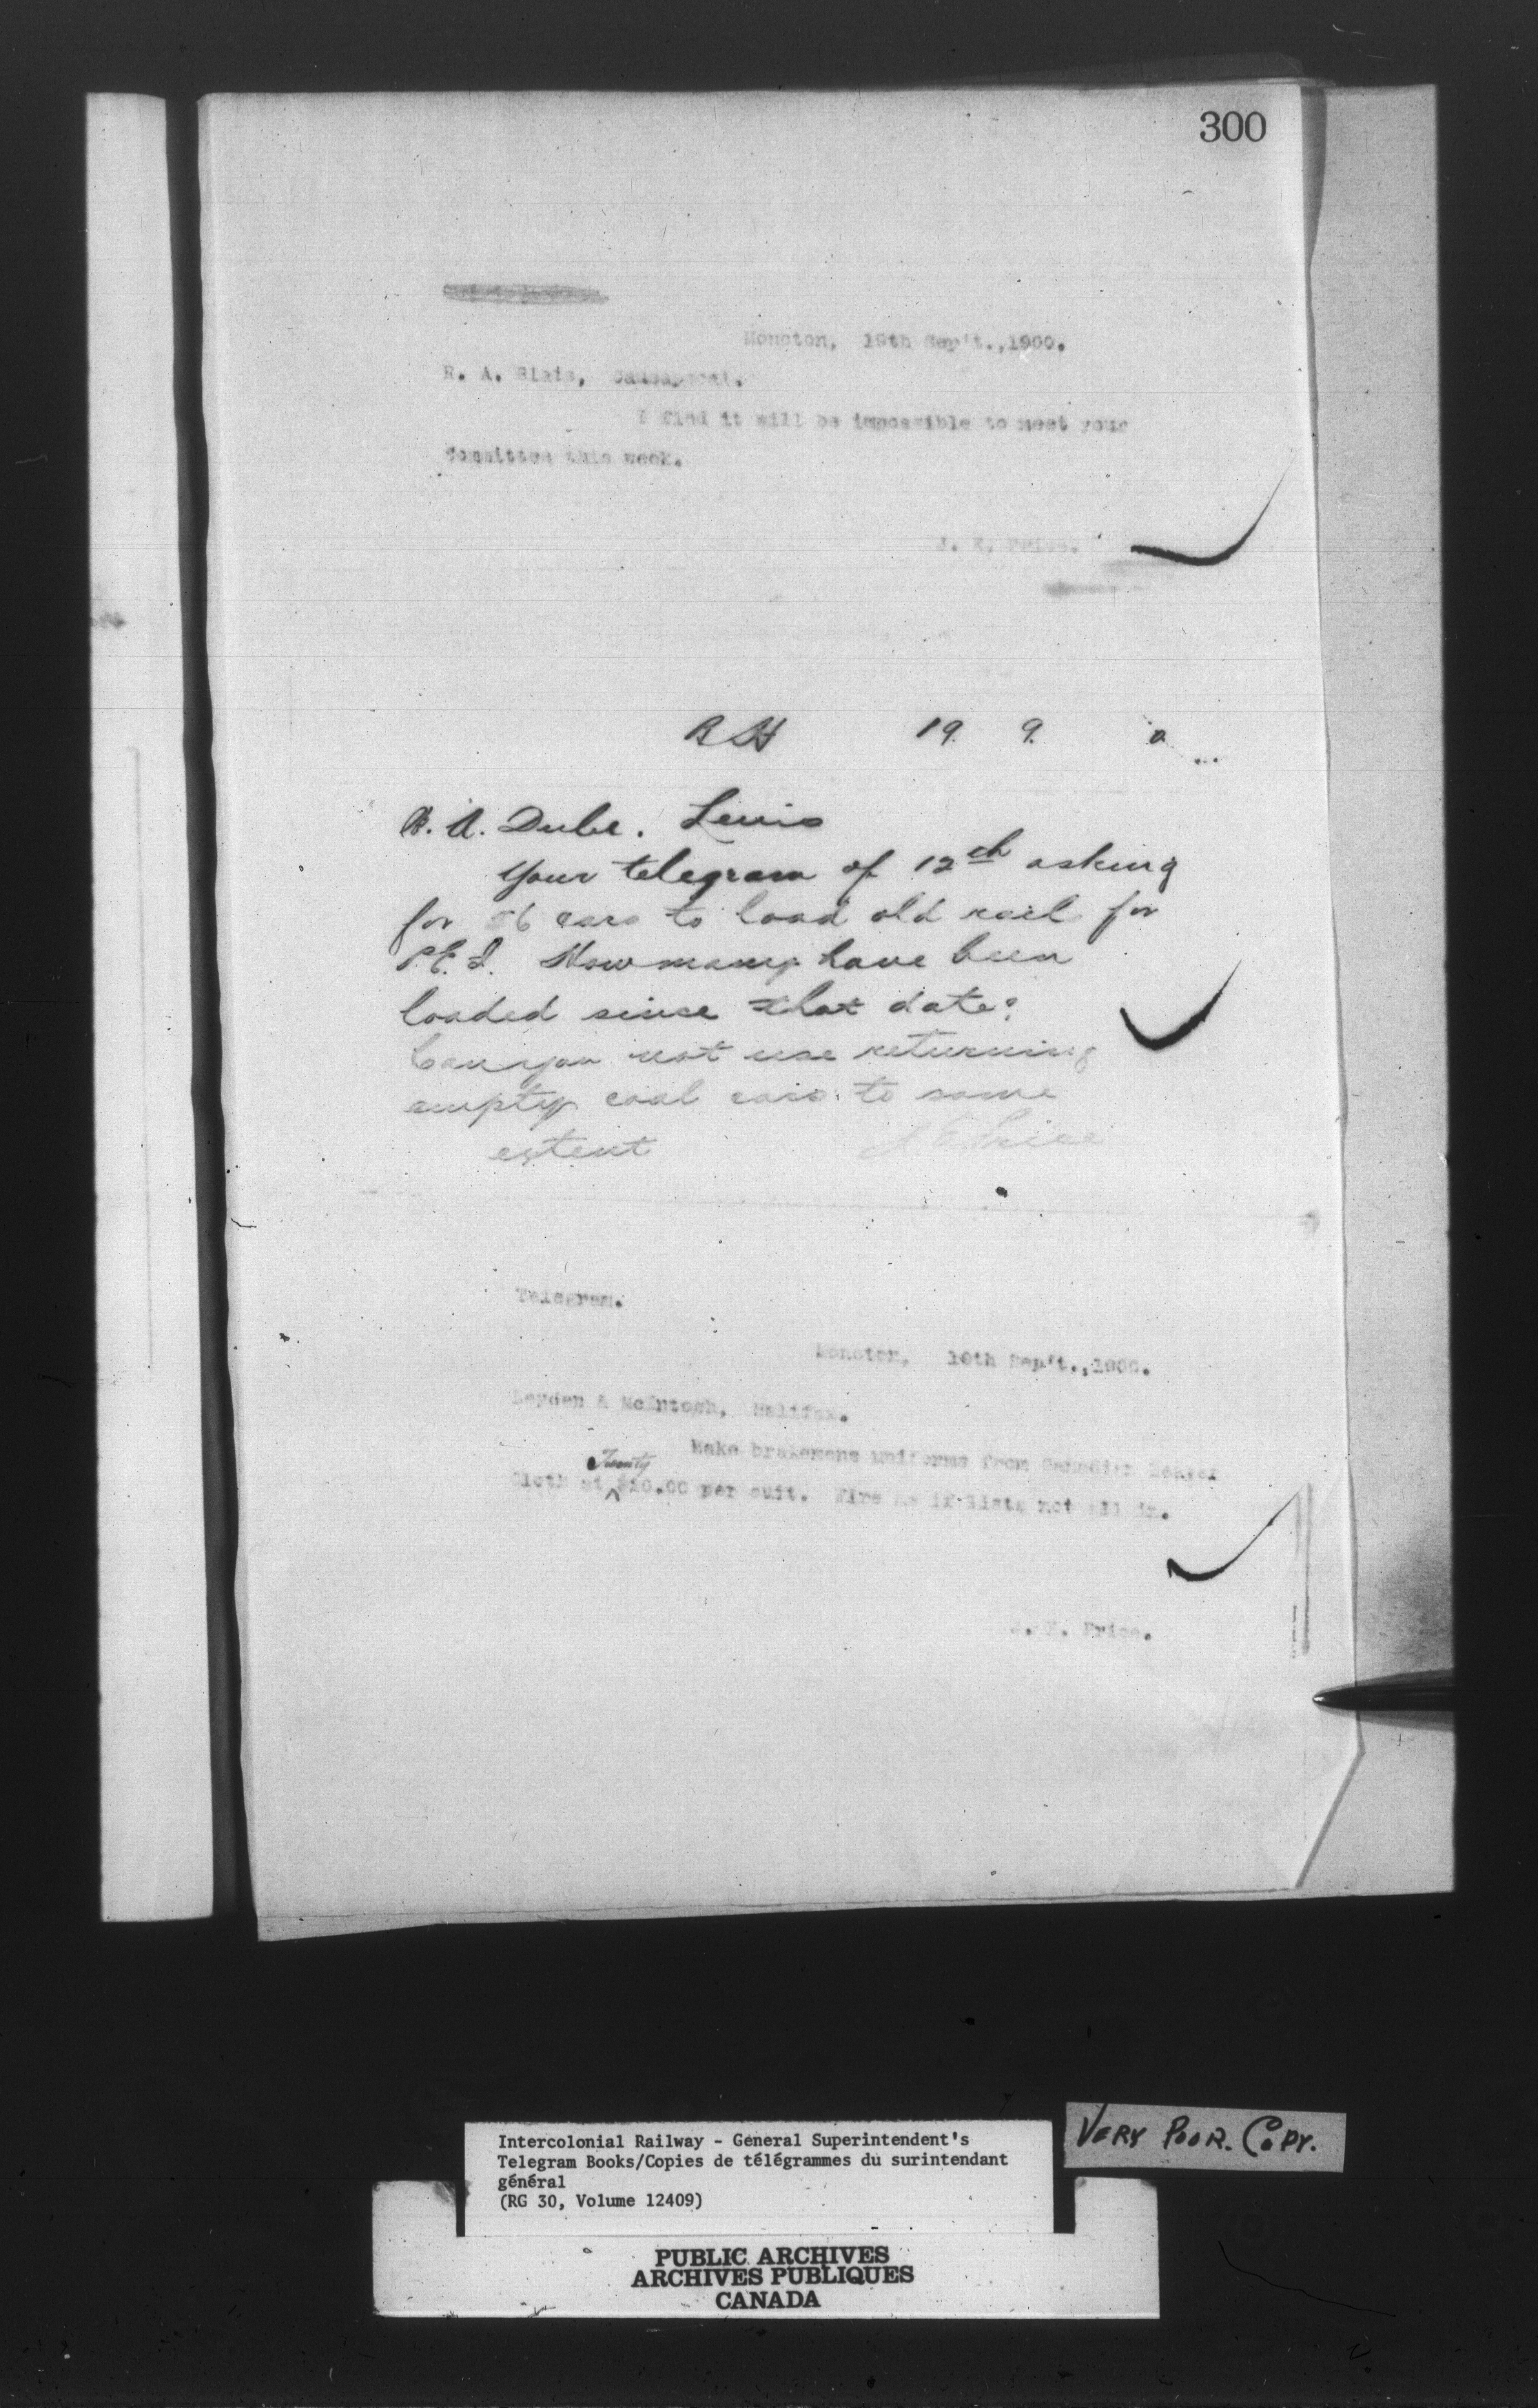 300
Moncton, 19th Sep't.,1900.
R. A. Blais, Causapscal.
I find it will be impossible to meet your
Committee this week.
J. E. Price.
19. 9.
A. Dube. Levis
Your telegram of 12th asking
for 56 cars to load old rail for
P.E.I. How many have been
loaded since that date?
Can you not use returning
empty coal cars to some
extent J E Price
Telegram.
Moncton, 19th Sep't.,1900.
Leyden & McIntosh, Halifax.
Make brakemens uniforms from Canadian Beaver
Twenty
Cloth at $20.00 per suit. Wire me if lists not all in.
J. E. Price.
VERY POOR. COPY.
Intercolonial Railway - General Superintendent's
Telegram Books/Copies de télégrammes du surintendant
général
(RG 30, Volume 12409)
PUBLIC ARCHIVES
ARCHIVES PUBLIQUES
CANADA